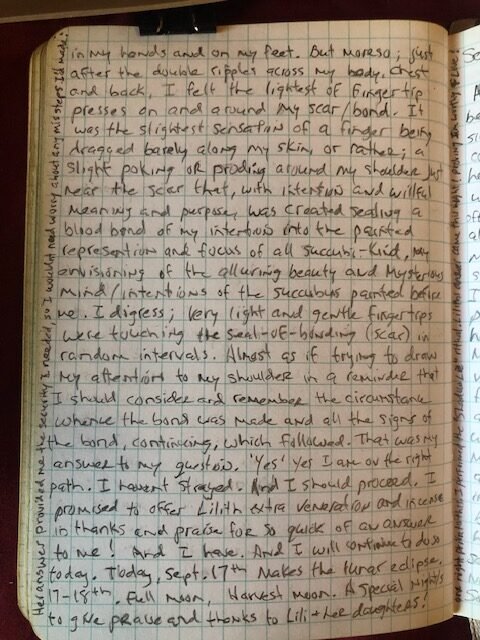 in my hands and on my feet. But moreso; just
after the double ripples across my body, chest
and back, I felt the lightest of fingertip
presses on and around my scar/bond. It
was the slightest sensation of a finger being
dragged barely along my skin, or rather; a
slight poking or proding around my shoulder just
near the scar that, with intention and willful
meaning and purpose, was created sealing a
blood bond of my intention into the painted
represention and focus of all succubi-kind, my
envisioning of the alluring beauty and mysterious
mind/intentions of the succubus painted before
me. I digress; very light and gentle fingertips
were touching the seal-of-bonding (scar) in
random intervals. Almost as if trying to draw
my attention to my shoulder in a reminder that
I should consider and remember the circumstance
whence the bond was made and all the signs of
the bond, continuing, which followed. That was my
answer to my question. 'Yes' Yes I am on the right
path. I havent strayed. And I should proceed. I
promised to offer Lilith extra veneration and incense
in thanks and praise for so quick of an answer
to me! And I have. And I will continue to do so
today. Today, Sept. 17th makes the lunar eclipse.
17-18th. Full moon, Harvest moon. A special night
to give praise and thanks to Lili + her daughters!
Her answer provided me the security I needed, so I wouldnt need worry about any missteps I'd made.